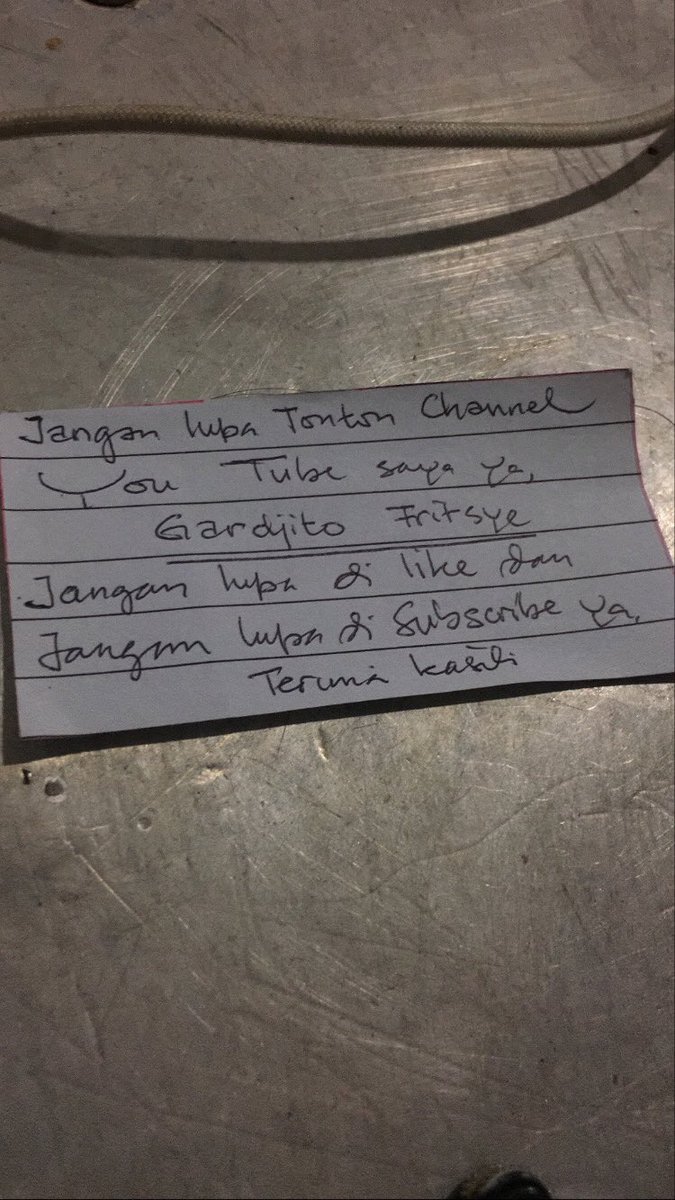 Jangan lupa Tonton Channel
You Tube saya ya,
Gardjito Fritsye
Jangan lupa di like dan
Jangan lupa di Subscribe ya,
Terima kasih